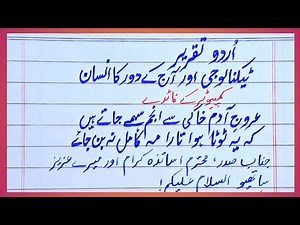 اُردو تقریر
ٹیکنالوجی اور آج کے دور کا انسان
کمپیوٹر کے فائدے
عروجِ آدمِ خاکی سے انجم سہمے جاتے ہیں
کہ یہ ٹوٹا ہوا تارا مہِ کامل نہ بن جائے
جناب صدر، محترم اساتذہ کرام اور میرے عزیز
ساتھیو السلام علیکم!